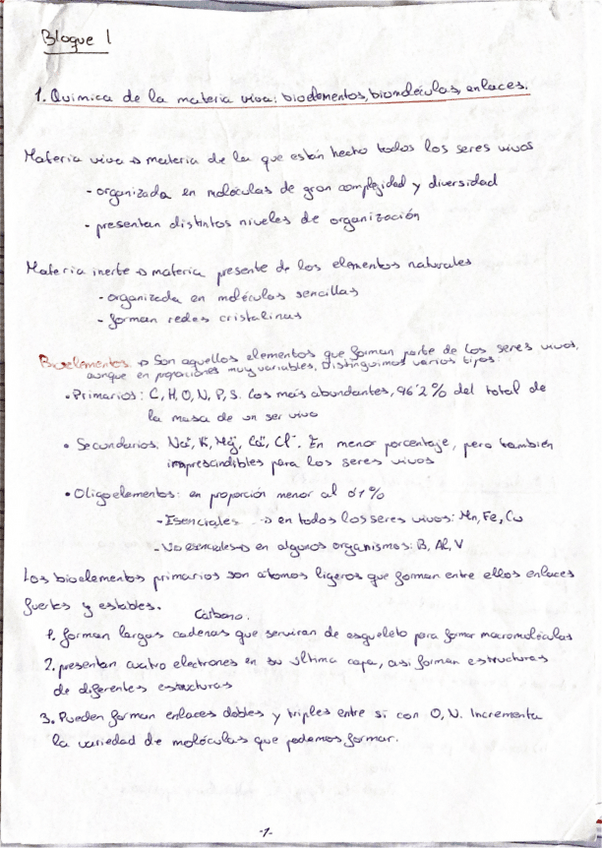 Bloque 1
1. Química de la materia viva: bioelementos, biomoléculas, enlaces.
Materia viva → materia de la que están hecho todos los seres vivos
- organizada en moléculas de gran complejidad y diversidad
- presentan distintos niveles de organización
Materia inerte → materia presente de los elementos naturales
- organizada en moléculas sencillas
- forman redes cristalinas
Bioelementos → Son aquellos elementos que forman parte de los seres vivos,
aunque en proporciones muy variables, Distinguimos varios tipos:
• Primarios: C, H, O, N, P, S. Los más abundantes, 96'2% del total de
la masa de un ser vivo
• Secundarios. Na⁺, K⁺, Mg⁺, Ca⁺, Cl⁻. En menor porcentaje, pero también
imprescindibles para los seres vivos
• Oligoelementos: en proporción menor al 0'1%
- Esenciales → en todos los seres vivos: Mn, Fe, Cu
- No esenciales → en algunos organismos: B, Al, V
Los bioelementos primarios son átomos ligeros que forman entre ellos enlaces
fuertes y estables.
Carbono.
1. forman largas cadenas que serviran de esqueleto para formar macromoléculas
2. presentan cuatro electrones en su última capa, asi forman estructuras
de diferentes estructuras
3. Pueden forman enlaces dobles y triples entre si con O, N. Incrementa
la variedad de moléculas que podemos formar.
-1-